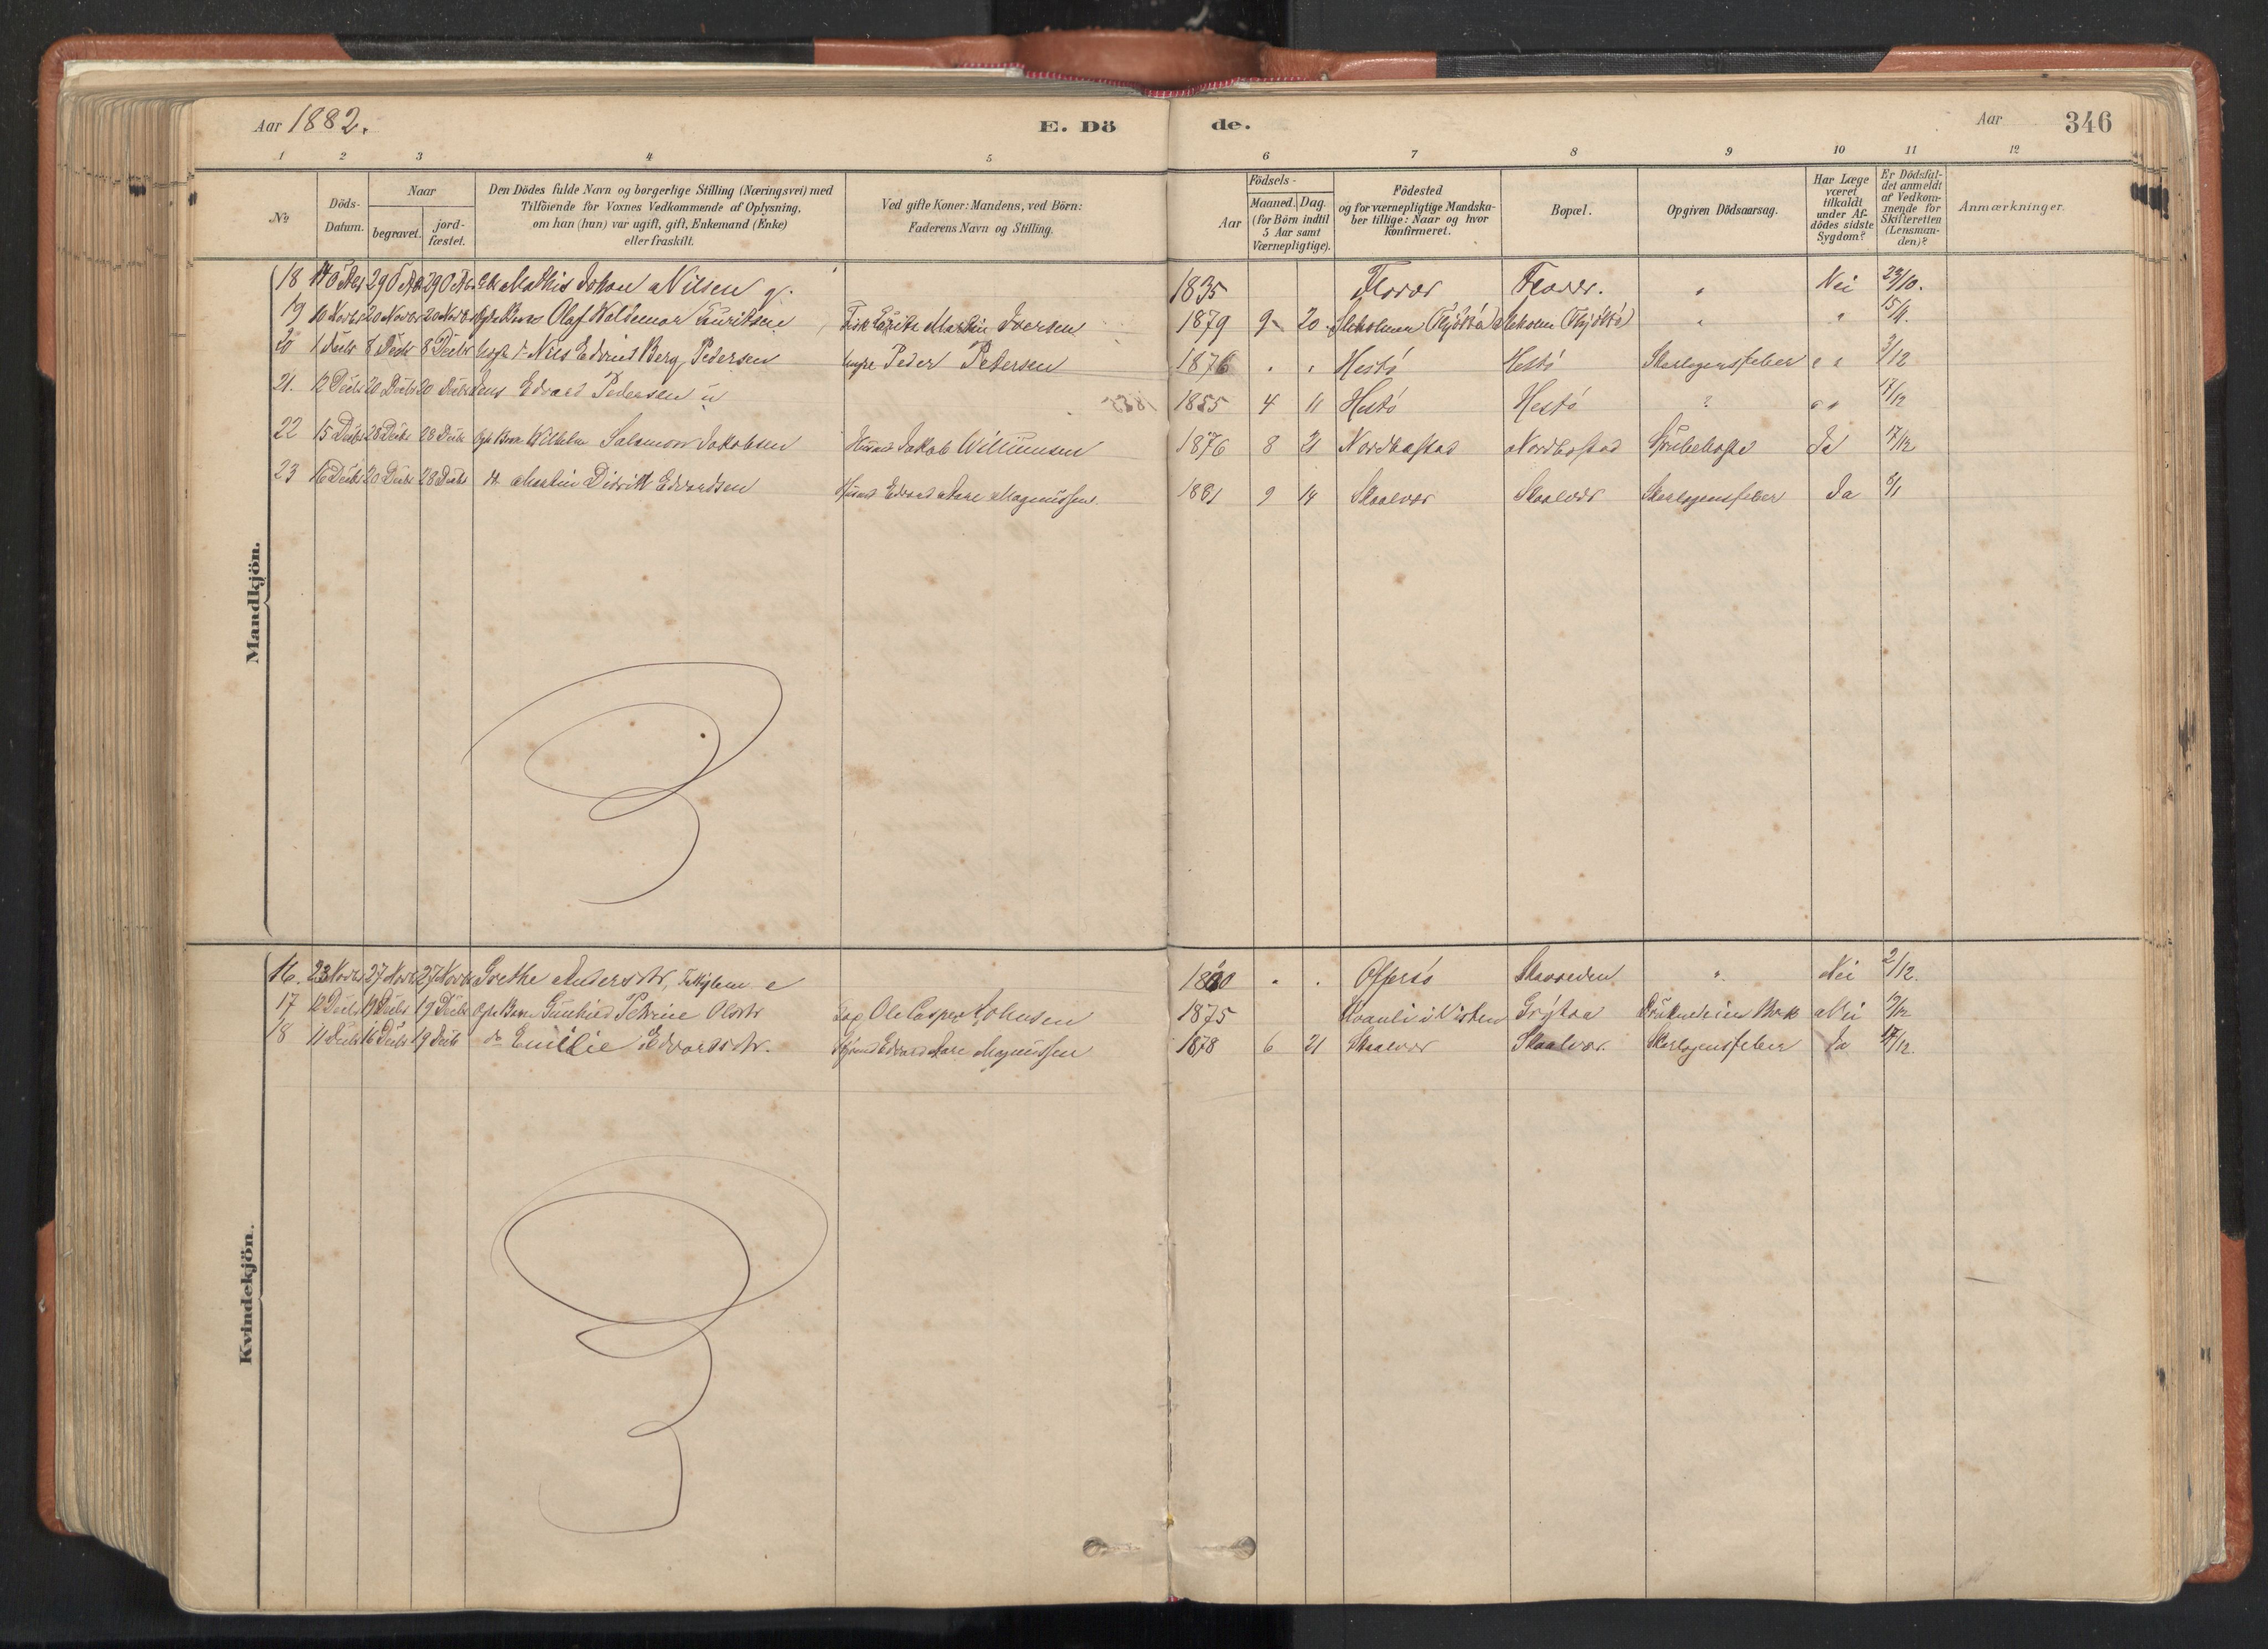 Aar 1882.
E. Dö
de.
Aar
346
1 2 3 4 5 6 7 8 9 10 11 12
No
Döds-
Datum.
Naar
begravet.
jord-
fæstet.
Den Dödes fulde Navn og borgerlige Stilling (Næringsvei) med
Tilföiende for Voxnes Vedkommende af Oplysning,
om han (hun) var ugift, gift, Enkemand (Enke)
eller fraskilt.
Ved gifte Koner: Mandens, ved Börn:
Faderens Navn og Stilling.
Födsels-
Aar
Maaned.
Dag.
(for Börn indtil
5 Aar samt
Værnepligtige).
Födested
og for værnepligtige Mandska-
ber tillige: Naar og hvor
Konfirmeret.
Bopæl.
Opgiven Dödsaarsag.
Har Læge
været
tilkaldt
under Af-
dödes sidste
Sygdom?
Er Dödsfal-
det anmeldt
af Vedkom-
mende for
Skifteretten
(Lensman-
den)?
Anmærkninger.
Mandkjön.
18 29 Octbr 29 Octbr Mathis Johan Nilsen g. 1835 Flovær Flovær. " Nei 23/10.
19 10 Novbr 20 Novbr 20 Novbr Olaf Waldemar Lauritsen Martin Iversen 1879 9 20 " " 15/11.
20 1 Decbr 8 Decbr 8 Decbr Nils Edvind Berg Pedersen Peder Pedersen 1876 " " Hestö Hestö Skarlagensfeber " " 3/12
21. 12 Decbr 20 Decbr 20 Decbr Jens Edvard Pedersen u 1855 4 11 Hestö Hestö ? " " 17/12
22 15 Decbr 28 Decbr 28 Decbr Wilhelm Salomon Jakobsen Husmd Jakob Williumsen 1876 8 21 Strubehoste Ja 17/12
23 16 Decbr 20 Decbr 28 Decbr Martin Didrik Edvardsen Husmd Edvard Aare Magnussen. 1881 9 14 Skaalvær Skaalvær Skarlagensfeber Ja 8/1
Kvindekjön.
16. 23 Novbr 27 Novbr 27 Novbr Grethe Andersdtr, e " " Offersö " Nei 2/12.
17 12 Decbr 19 Decbr 19 Decbr Gunhild Petrine Olsdtr Ole Casper Johnsen 1875 i Visten Grytaa Nei
18 11 Decbr 16 Decbr 19 Decbr do Emilie Edvardsdtr. Edvard Aare Magnussen 1878 6 21 Skaalvær Skaalvær. Skarlagensfeber Ja 17/12.